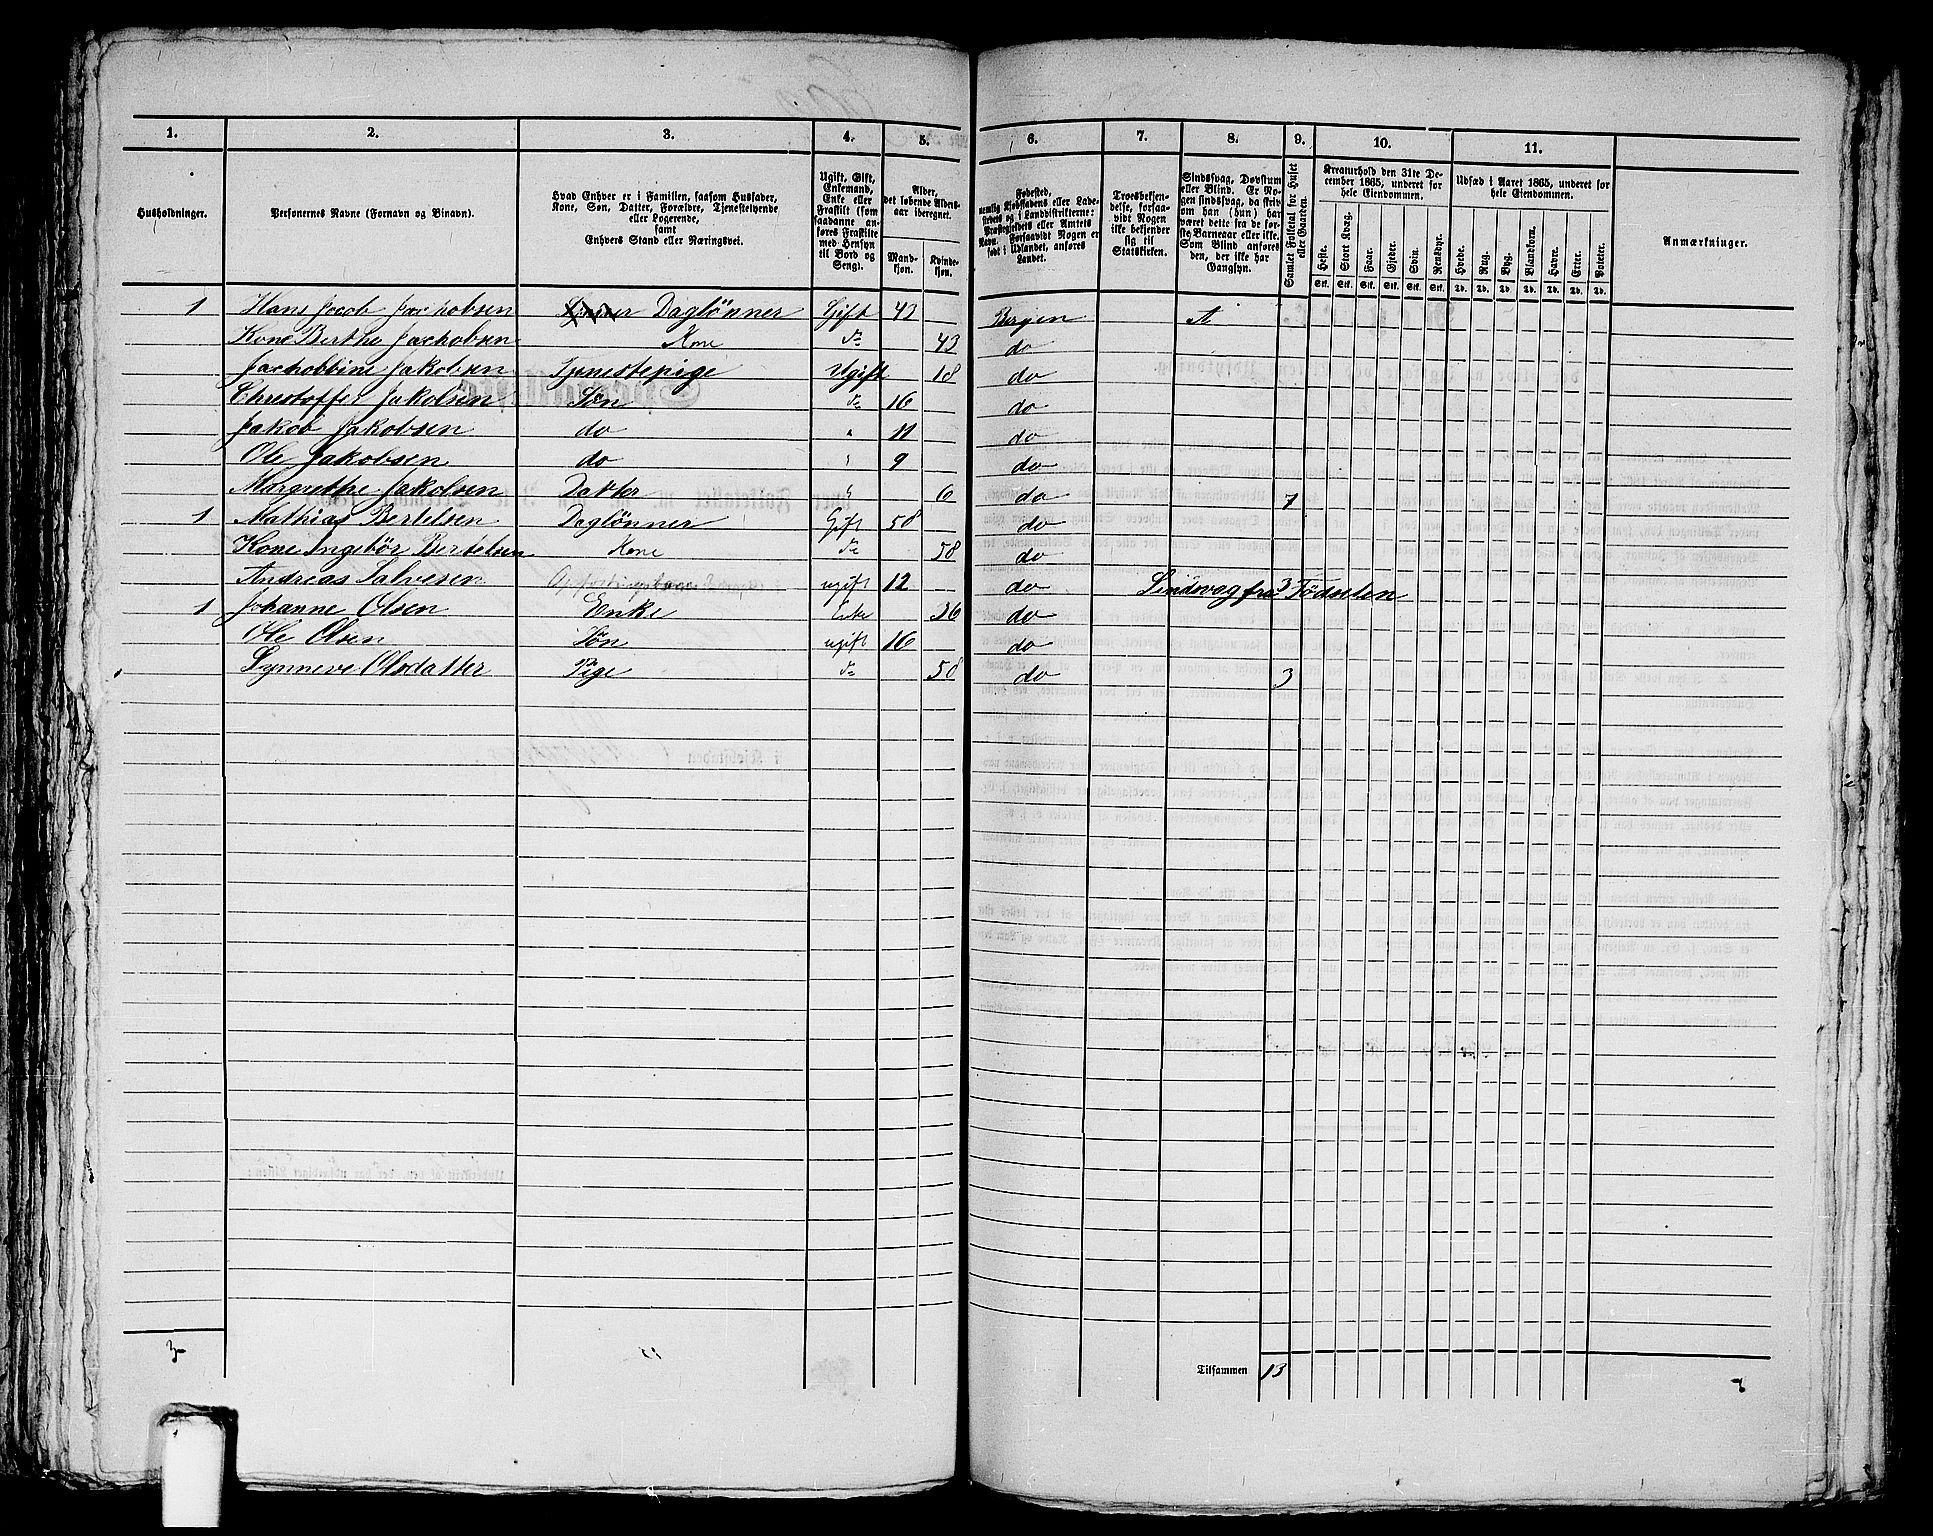 1. 2. 3. 4. 5. 6. 7. 8. 9. 10. 11.
Husholdninger.
Personernes Navne (Fornavn og Binavn).
Hvad Enhver er i Familien, saasom Husfader,
Kone, Søn, Datter, Forældre, Tjenestetyende
eller Logerende,
samt
Enhvers Stand eller Næringsvei.
Ugift, Gift,
Enkemand,
Enke eller
Fraskilt (som
saadanne an-
føres Fraskilte
med Hensyn
til Bord og
Seng).
Alder,
det løbende Alders-
aar iberegnet.
Mand-
kjøn.
Kvinde-
kjøn.
Fødested,
nemlig Kjøbstadens eller Lade-
stedets og i Landdistrikterne:
Præstegjeldets eller Amtets
Navn. Forsaavidt Nogen er
født i Udlandet, anføres
Landet.
Troesbekjen-
delse, forsaa-
vidt Nogen
ikke bekjender
sig til
Statskirken.
Sindssvag, Døvstum
eller Blind. Er No-
gen sindssvag, da skriv
om han (hun) har
været dette fra de før-
ste Barneaar eller ikke.
Som Blind anføres
den, der ikke har
Gangsyn.
Samlet Folketal for Huset
eller Gaarden.
Kreaturhold den 31te De-
cember 1865, underet for
hele Eiendommen.
Heste. Stort Kvæg. Faar. Gjeder. Svin. Rensdyr.
Stk. Stk. Stk. Stk. Stk. Stk.
Udsæd i Aaret 1865, underet for
hele Eiendommen.
Hvede. Rug. Byg. Blandkorn. Havre. Erter. Poteter.
Td. Td. Td. Td. Td. Td. Td.
Anmærkninger.
1 Hans Jacob Jachobsen Daglönner Gift 43 Bergen
Kone Berthe Jachobsen Kone do 43 do
Jachobbine Jakobsen Tjenestepige Ugift 18 do
Christoffer Jakobsen Sön do 16 do
Jakob Jakobsen do " 11 do
Ole Jakobsen do " 9 do
Margrethe Jakobsen Datter " 6 do 7
1 Mathias Bertelsen Daglönner Gift 58 do
Kone Ingebör Bertelsen Kone do 58 do
Andreas Salvesen ugift 12 do Sindsvag fra Födselen 3
1 Johanne Olsen Enke Enke 36 do
Ole Olsen Sön ugift 16 do
Synneve Olsdatter Pige do 58 do 3
3
Tilsammen 13